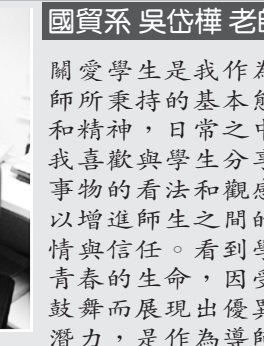 國貿系 吳岱樺 老師
關愛學生是我作為
師所秉持的基本態
和精神，日常之中
我喜歡與學生分享
事物的看法和觀感
以增進師生之間的
情與信任。看到學
青春的生命，因受
鼓舞而展現出優異
潛力，是作為導師